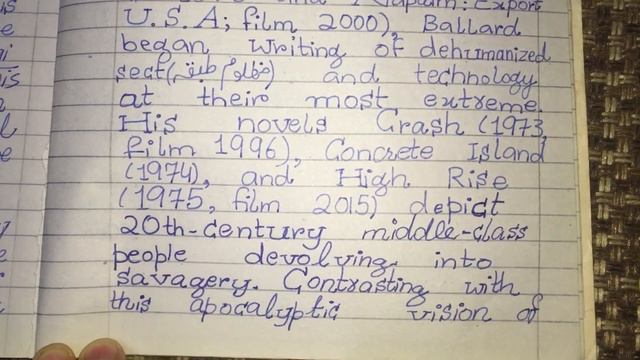 : Export
U.S.A; film 2000), Ballard
began writing of dehumanized
sect(مظلوم طبقہ) and technology
at their most extreme.
His novels Crash (1973,
film 1996), Concrete Island
(1974), and High Rise
(1975, film 2015) depict
20th-century middle-class
people devolving into
savagery. Contrasting with
this apocalyptic vision of